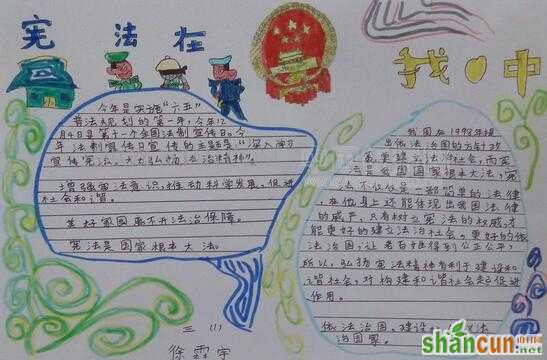 宪法在
我心中
今年是实施“六五”
普法规划的第一年,今年12
月4日是第十一个全国法制宣传日。今
年法制宣传日宣传的主题是“深入学习
宣传宪法,大力弘扬法治精神”。
增强宪法意识,推动科学发展,促进
社会和谐。
美好家园离不开法治保障。
宪法是国家根本大法。
三(1)
徐雪宇
我国在1998年提
出依法治国的方针政
策,更建立法治社会,而宪
法是我国国家根本大法,宪
法不仅仅是一部简单的法律
在他身上还能体现出我国法律
的威严,只有树立宪法的权威,才
能更好的建立法治社会,更好的依
法治国,让老百姓得到公正公平,
所以,弘扬宪法精神有利于建设和
谐社会,对构建和谐社会起促进
作用。
依法治国,建设法
治国家。
shancun
.net